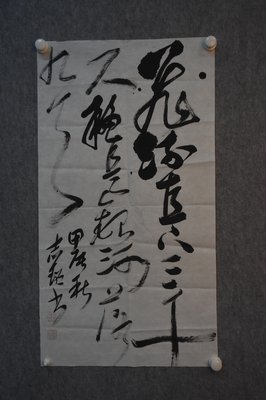 飛流直下三千
尺疑是銀河落
九天
甲辰秋
志 书